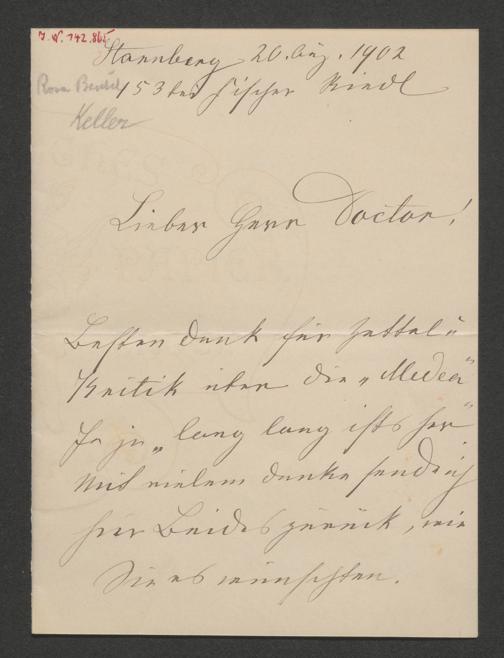 J.N. 142.865
Starnberg 20. Aug. 1902
153 bei Fischer Riedl
Rosa
Keller
Lieber Herr Doctor!
Besten Dank für Zettel u
Kritik über die „Medea“
Ja ja „lang lang ists her“
Mit vielem Danke sende ich
hier Beides zurück, wie
Sie es wünschten.